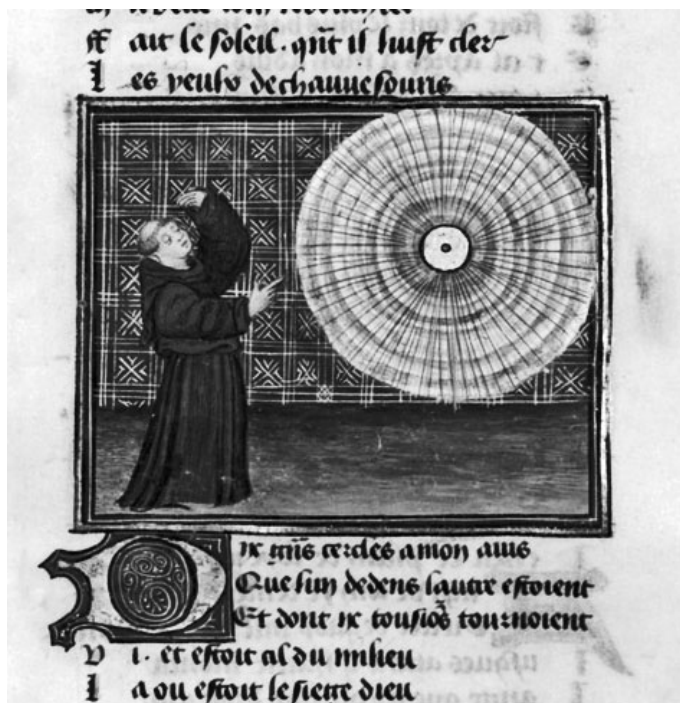 ff ait le soleil. qñt il luist cler
L es yeulx de chauuesouris
D ix gñs cercles a mon auis
Que lun dedens lautre estoient
Et dont ix tousiõs tournoient
V i. et estoit cil du milieu
L a ou estoit le siege dieu